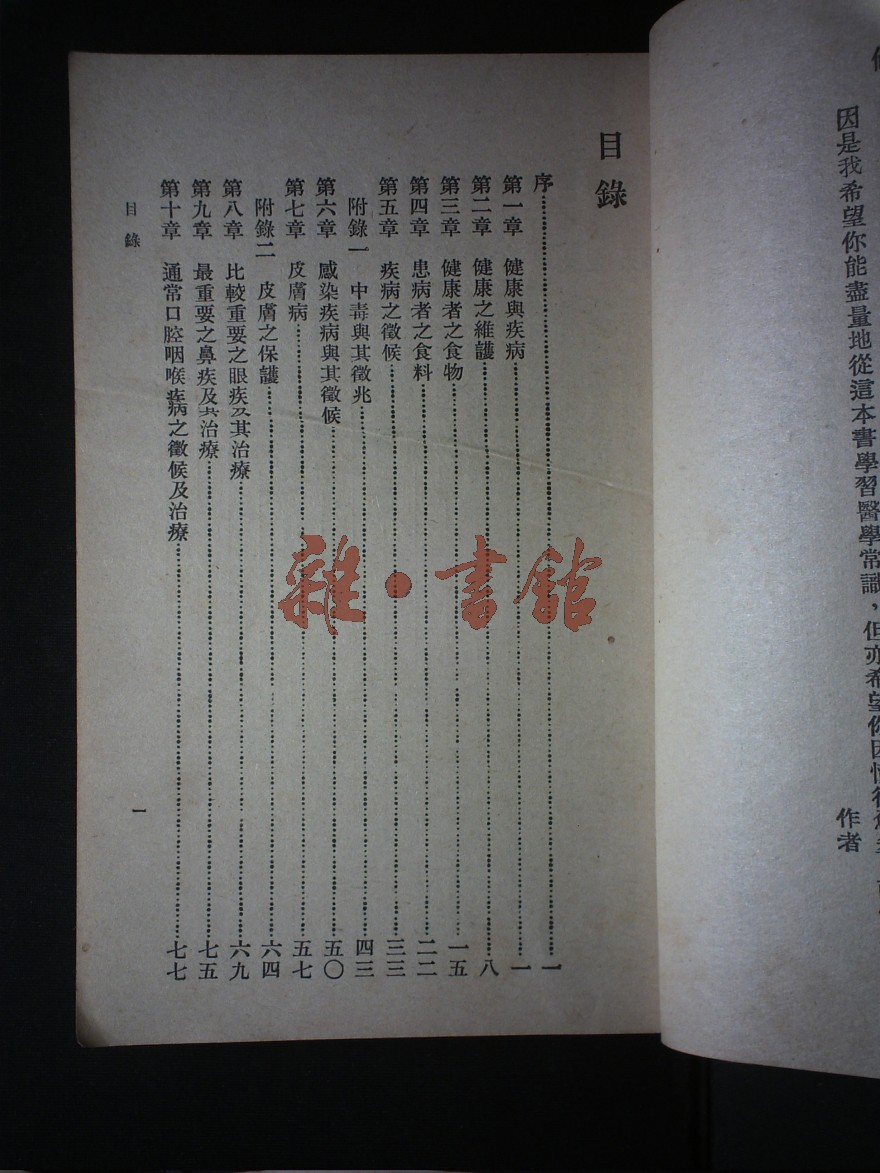 因是我希望你能盡量地從這本書學習醫學常識，但亦希望你因
作者
目錄
序 一
第一章 健康與疾病 一
第二章 健康之維護 八
第三章 健康者之食物 一五
第四章 患病者之食料 二二
第五章 疾病之徵候 三三
附錄一 中毒與其徵兆 四三
第六章 感染疾病與其徵候 五〇
第七章 皮膚病 五七
附錄二 皮膚之保護 六四
第八章 比較重要之眼疾及其治療 六九
第九章 最重要之鼻疾及其治療 七五
第十章 通常口腔咽喉疾病之徵候及治療 七七
目錄
一
雜·書館